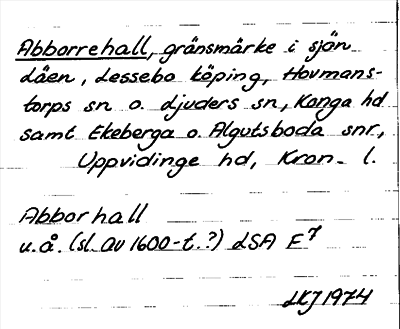 Abborrehall, gränsmärke i sjön
Låen, Lessebo köping, Hovmans-
torps sn o. Ljuders sn, Konga hd
samt Ekeberga o. Algutsboda snr,
Uppvidinge hd, Kron. l.
Abborhall
u.å. (sl. av 1600-t.?) LSA E 7
LKJ 1974